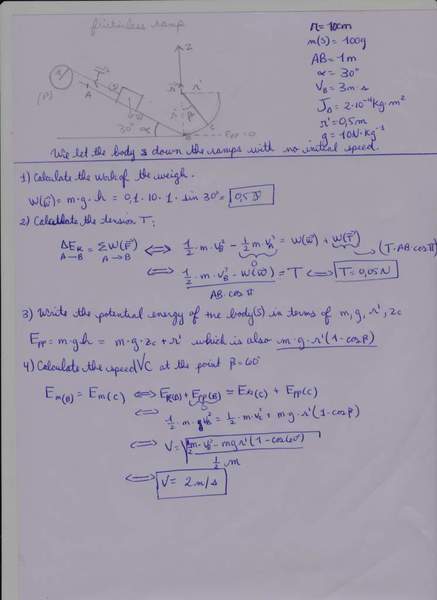 frictionless ramp
r = 10cm
m(S) = 100g
AB = 1m
α = 30°
V_B = 3m·s
J_Δ = 2·10^-4 kg·m²
r' = 0,5m
g = 10N·Kg^-1
Z
r'
T
A
30° α
β
C
E_PP = 0
We let the body S down the ramps with no initial speed.
1) Calculate the work of the weigh.
W(ω) = m·g·h = 0,1·10·1·sin 30° = 0,5 J
2) Calculate the tension T:
ΔE_K = ΣW(F) ⟺ 1/2·m·V_B² - 1/2·m·V_A² = W(ω) + W(T)
A→B A→B 0 (T·AB·cos π)
⟺ 1/2·m·V_B² - W(ω) = T ⟺ T = 0,05N
AB·cos π
3) Write the potential energy of the body(s) in terms of m, g, r', zc
E_PP = m·g·h = m·g·zc + r' which is also m·g·r'(1-cosβ)
4) Calculate the speed VC at the point β = 60°
E_m(B) = E_m(C) ⟺ E_K(B) + E_PP(B) = E_K(C) + E_PP(C)
⟺ 1/2·m·V_B² = 1/2·m·V_C² + m·g·r'(1-cosβ)
⟺ V = √ 1/2 m·V_B² - mgr'(1-cos60°)
1/2 m
⟺ V = 2m/s